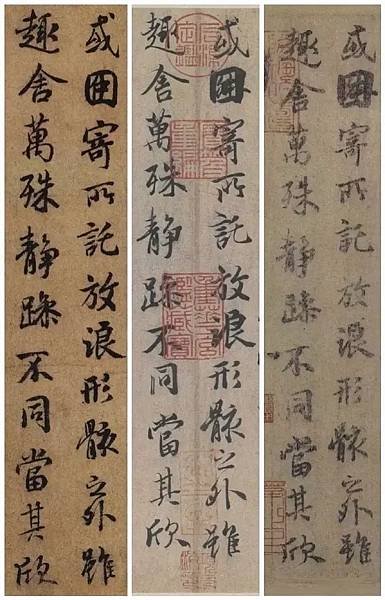 或因寄所託放浪形骸之外雖
趣舍萬殊静躁不同當其欣
或因寄所託放浪形骸之外雖
趣舍萬殊静躁不同當其欣
或因寄所託放浪形骸之外雖
趣舍萬殊静躁不同當其欣